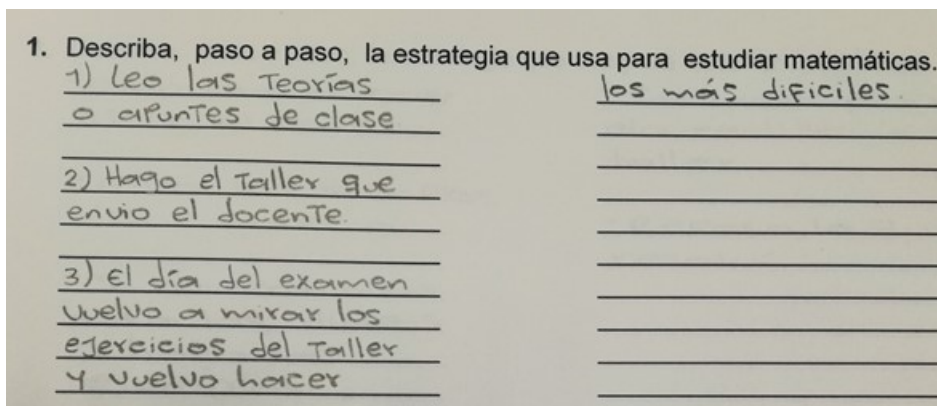 1. Describa, paso a paso, la estrategia que usa para estudiar matemáticas.
1) Leo las Teorías
o apuntes de clase
2) Hago el Taller que
envio el docente.
3) El día del examen
vuelvo a mirar los
ejercicios del Taller
y vuelvo hacer
los más dificiles.